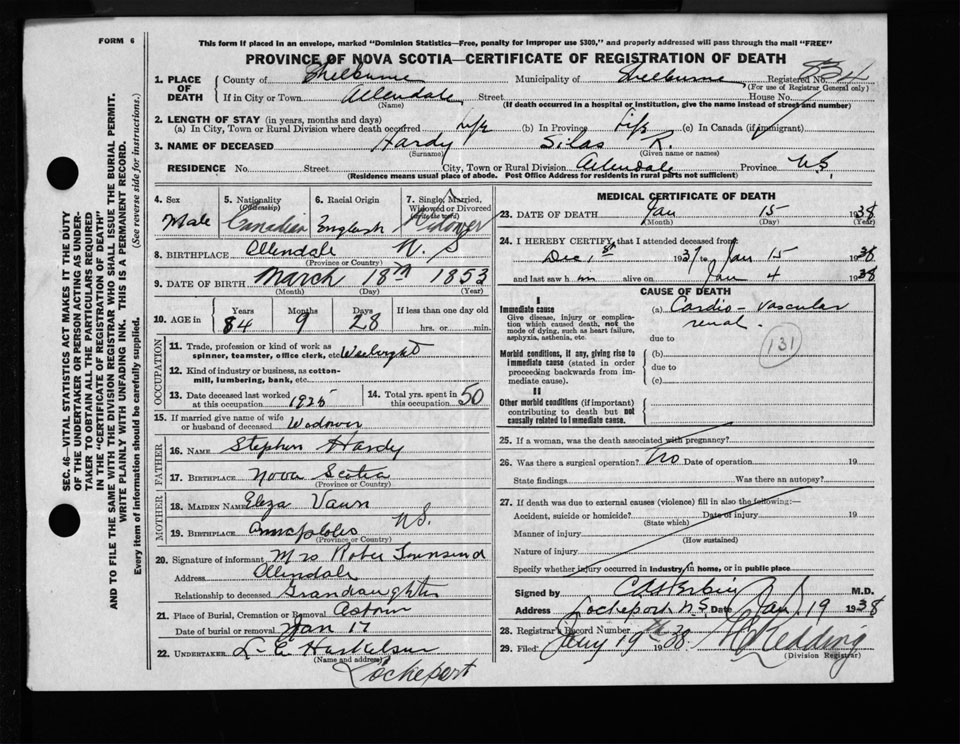 FORM 6
This form if placed in an envelope, marked "Dominion Statistics—Free, penalty for improper use $300," and properly addressed will pass through the mail "FREE"
PROVINCE OF NOVA SCOTIA—CERTIFICATE OF REGISTRATION OF DEATH
1. PLACE OF DEATH County of Shelburne Municipality of Shelburne Registered No.
(For use of Registrar General only)
If in City or Town Allendale Street House No.
(Name) (If death occurred in a hospital or institution, give the name instead of street and number)
2. LENGTH OF STAY (in years, months and days)
(a) In City, Town or Rural Division where death occurred Life (b) In Province Life (c) In Canada (if immigrant)
3. NAME OF DECEASED Hardy Silas R.
(Surname) (Given name or names)
RESIDENCE No. Street City, Town or Rural Division Allendale Province N.S.
(Residence means usual place of abode. Post Office Address for residents in rural parts not sufficient)
4. Sex Male
5. Nationality (Citizenship) Canadian
6. Racial Origin English
7. Single, Married, Widowed or Divorced (Write the word) Widower
8. BIRTHPLACE Allendale N. S
(Province or Country)
9. DATE OF BIRTH March 18th 1853
(Month) (Day) (Year)
10. AGE in Years Months Days If less than one day old
84 9 28 hrs. or min.
OCCUPATION
11. Trade, profession or kind of work as spinner, teamster, office clerk, etc
12. Kind of industry or business, as cotton-mill, lumbering, bank, etc.
13. Date deceased last worked at this occupation 1925
14. Total yrs. spent in this occupation 50
15. If married give name of wife or husband of deceased Widower
FATHER
16. NAME Stephen Hardy
17. BIRTHPLACE Nova Scotia
(Province or Country)
MOTHER
18. MAIDEN NAME Eliza
19. BIRTHPLACE N.S.
(Province or Country)
20. Signature of informant Mrs Townsend
Address Allendale
Relationship to deceased Grandaughter
21. Place of Burial, Cremation or Removal
Date of burial or removal Jan 17
22. UNDERTAKER L. E
(Name and address) Lockeport
MEDICAL CERTIFICATE OF DEATH
23. DATE OF DEATH Jan 15 1938
(Month) (Day) (Year)
24. I HEREBY CERTIFY that I attended deceased from
Dec 1st 1937 to Jan 15 1938
and last saw h im alive on Jan 4 1938
CAUSE OF DEATH
I
Immediate cause
Give disease, injury or complication which caused death, not the mode of dying, such as heart failure, asphyxia, asthenia, etc.
(a) Cardio-vascular
renal.
due to
131
Morbid conditions, if any, giving rise to immediate cause (stated in order proceeding backwards from immediate cause).
(b)
due to
(c)
II
Other morbid conditions (if important) contributing to death but not causally related to immediate cause.
25. If a woman, was the death associated with pregnancy?
26. Was there a surgical operation? No Date of operation 19
State findings Was there an autopsy?
27. If death was due to external causes (violence) fill in also the following:—
Accident, suicide or homicide? Date of injury 19
(State which)
Manner of injury
(How sustained)
Nature of injury
Specify whether injury occurred in industry, in home, or in public place
Signed by M.D.
Address Lockeport N.S. Date Jan 19 1938
28. Registrar's Record Number
29. Filed 19 1938 Redding
(Division Registrar)
SEC. 46—VITAL STATISTICS ACT MAKES IT THE DUTY
OF THE UNDERTAKER OR PERSON ACTING AS UNDER-
TAKER TO OBTAIN ALL THE PARTICULARS REQUIRED
IN THE "CERTIFICATE OF REGISTRATION OF DEATH"
AND TO FILE THE SAME WITH THE DIVISION REGISTRAR WHO SHALL ISSUE THE BURIAL PERMIT.
WRITE PLAINLY WITH UNFADING INK. THIS IS A PERMANENT RECORD.
Every item of information should be carefully supplied. (See reverse side for instructions.)